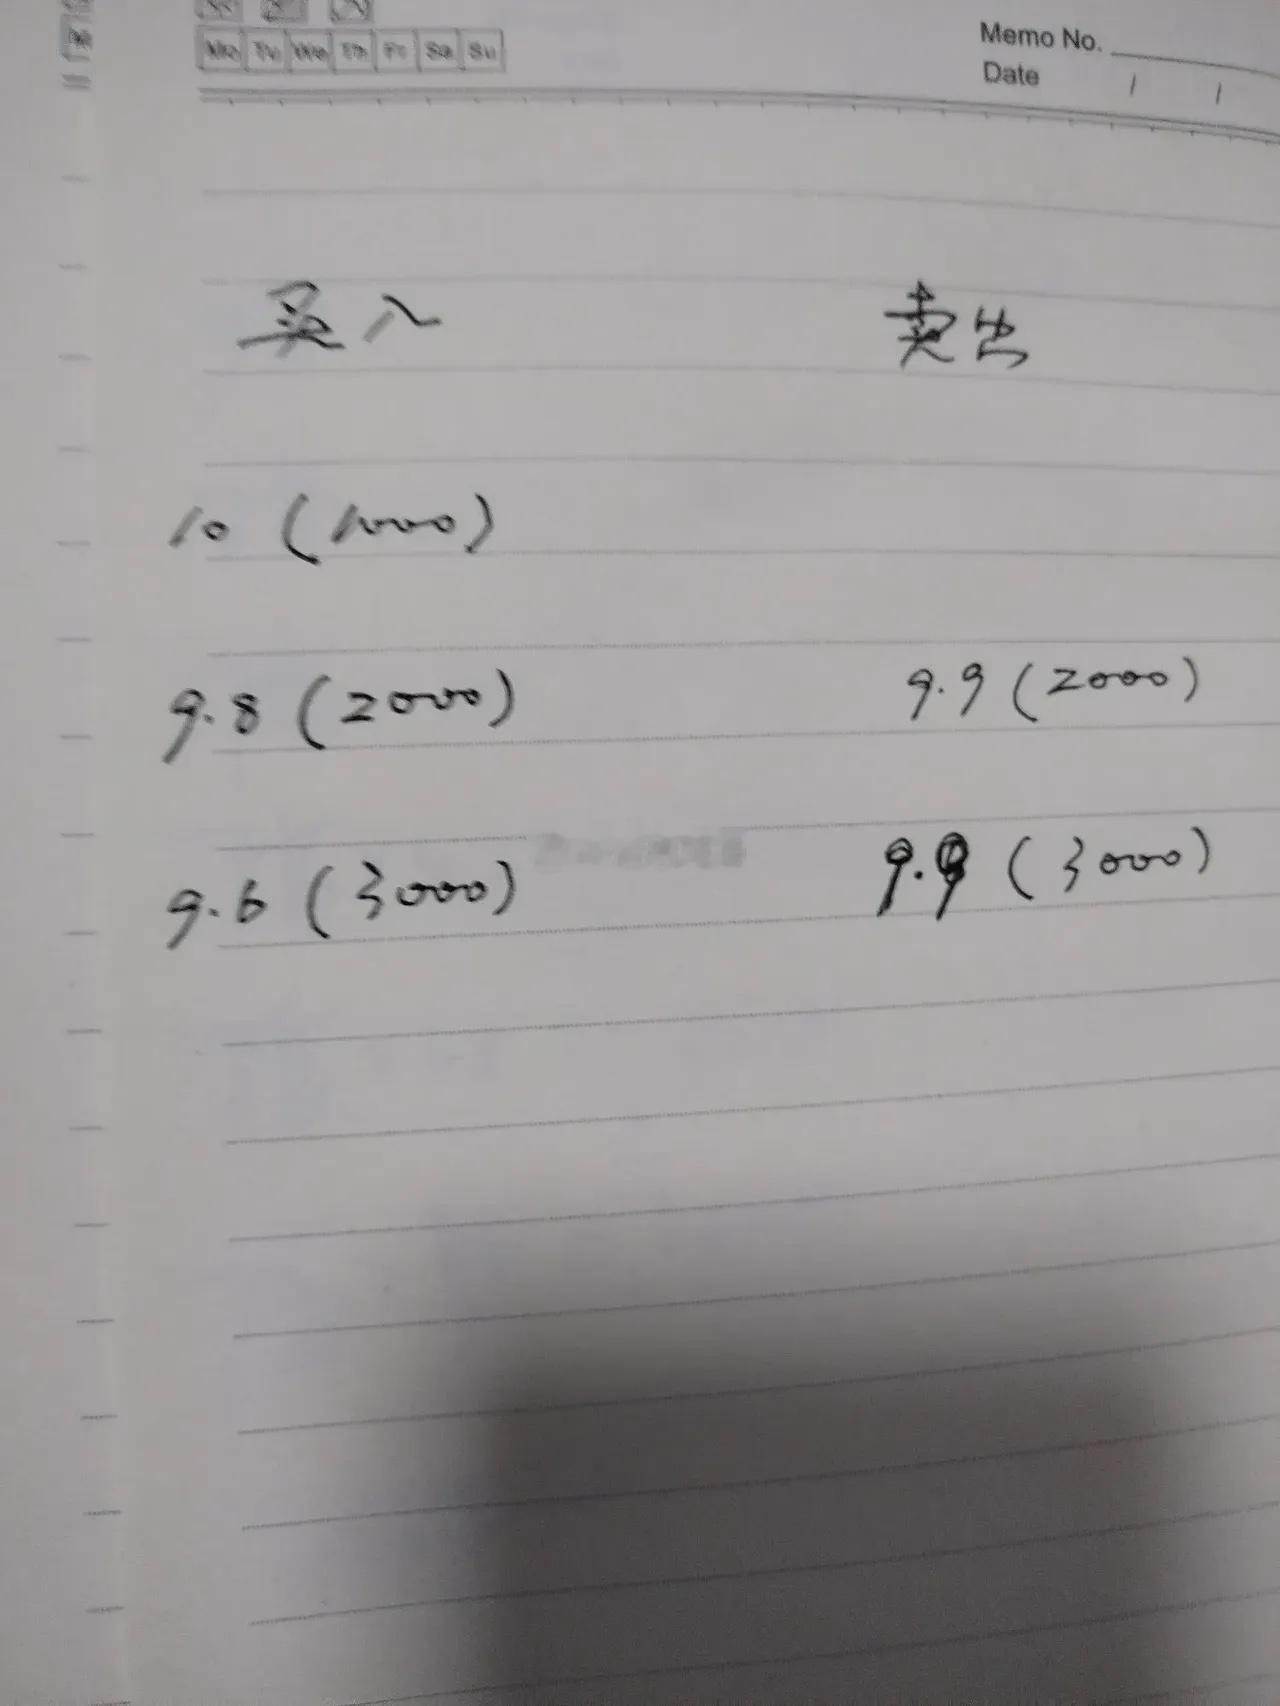 Mo Tu We Th Fr Sa Su
Memo No.
Date / /
买入 卖出
10 (1000)
9.8 (2000) 9.9 (2000)
9.6 (3000) 9.9 (3000)